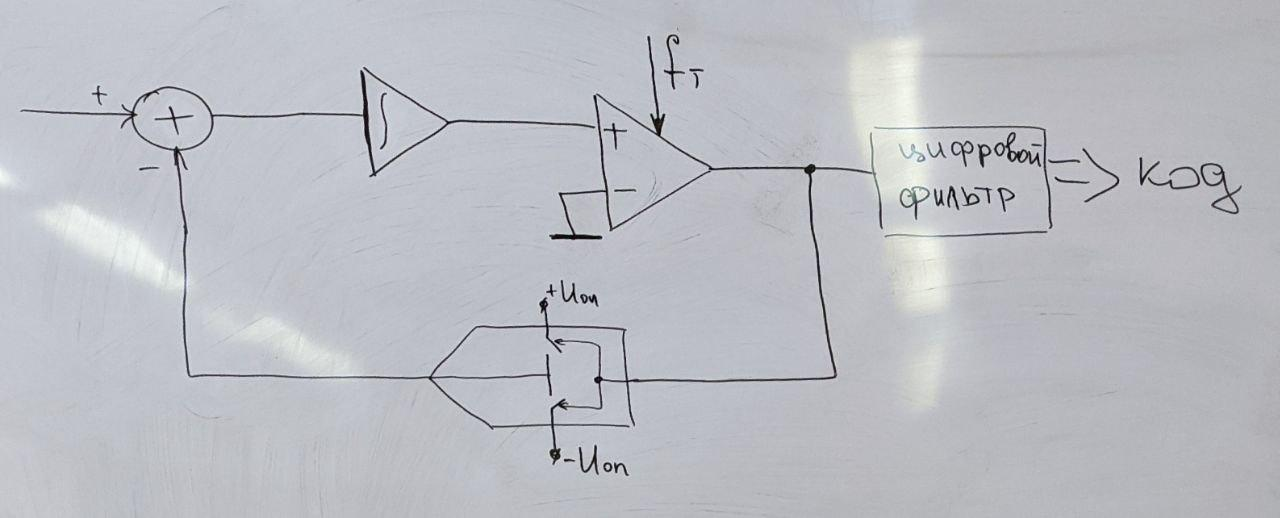 +
+
-
∫
+
-
fт
цифровой
фильтр
=> код
+Uоп
-Uоп